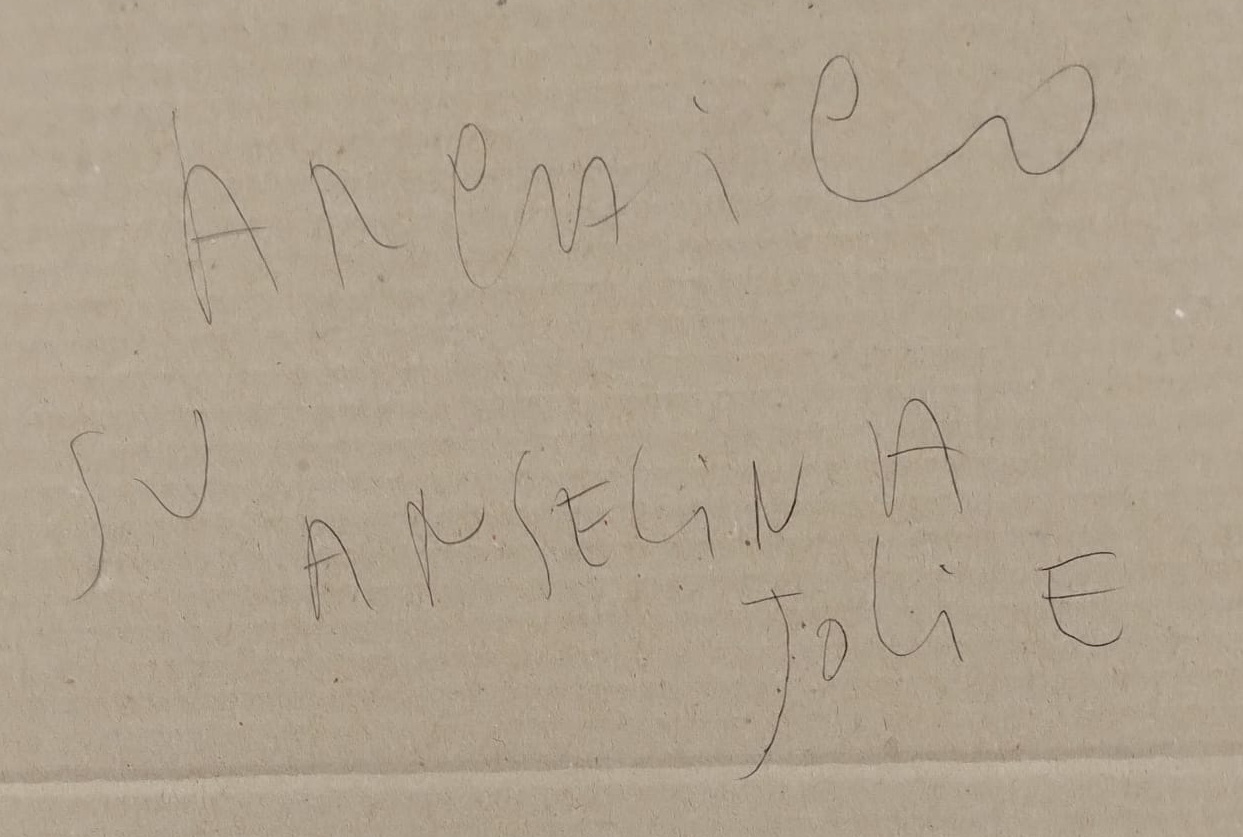 ARCAiCO
SU ANGELiNA
JOLiE